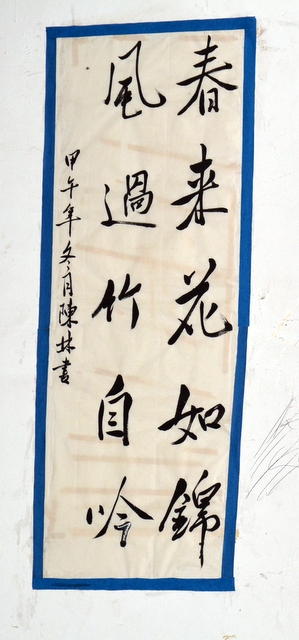 春来花如錦
風過竹自吟
甲午年冬月陳林書